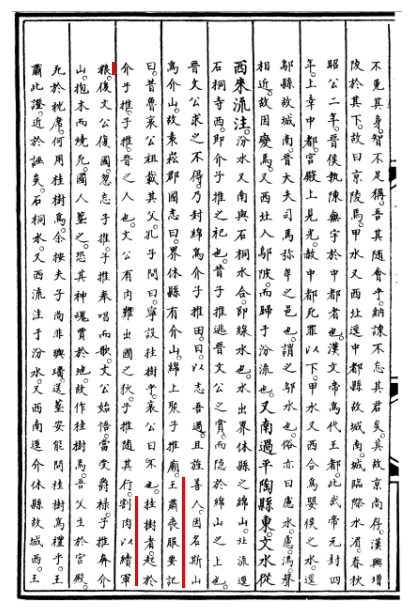 不免其身。智不足稱。吾其隨會乎。納諫不忘其君矣。其故京尚存。漢興增
陵於其下。故曰京陵焉。甲水又西北逕中都縣故城南。城臨際水湄。春秋
昭公二年。晉侯執陳無宇於中都者也。漢文帝為代王都此。武帝元封四
年。上幸中都宮。殿上見光。赦中都死罪以下。甲水又西合嬰侯之水。逕
鄔縣故城南。晉大夫司馬彌牟之邑也。謂之鄔水也。俗亦曰慮水。慮鄔聲
相近。故因變焉。又西北入鄔陂。而歸于汾流也。又南過平陶縣東。文水從
西來流注。汾水又南與石桐水合。即綿水也。水出界休縣之綿山。北流逕
石桐寺西。即介子推之祠也。昔子推逃晉文公之賞。而隱於綿山之上也。
晉文公求之不得。乃封綿為介子推田。曰。以志吾過。且旌善人。因名斯山
為介山。故袁崧郡國志曰。界休縣有介山。綿上聚。子推廟。王肅喪服要記
曰。昔魯哀公祖載其父。孔子問曰。寧設桂樹乎。哀公曰。不也。桂樹者。起於
介子推。子推。晉之人也。文公有內難。出國之狄。子推隨其行。割肉以續軍
糧。後文公復國。忽忘子推。子推奉唱而歌。文公始悟。當受爵祿。子推奔介
山。抱木而燒死。國人葬之。恐其神魂賈於地。故作桂樹焉。吾父生於宮殿。
死於枕席。何用桂樹為。余按夫子尚非璵璠送葬。安能問桂樹為禮乎。王
肅此證。近於誣矣。石桐水又西流注于汾水。又西南逕介休縣故城西。王